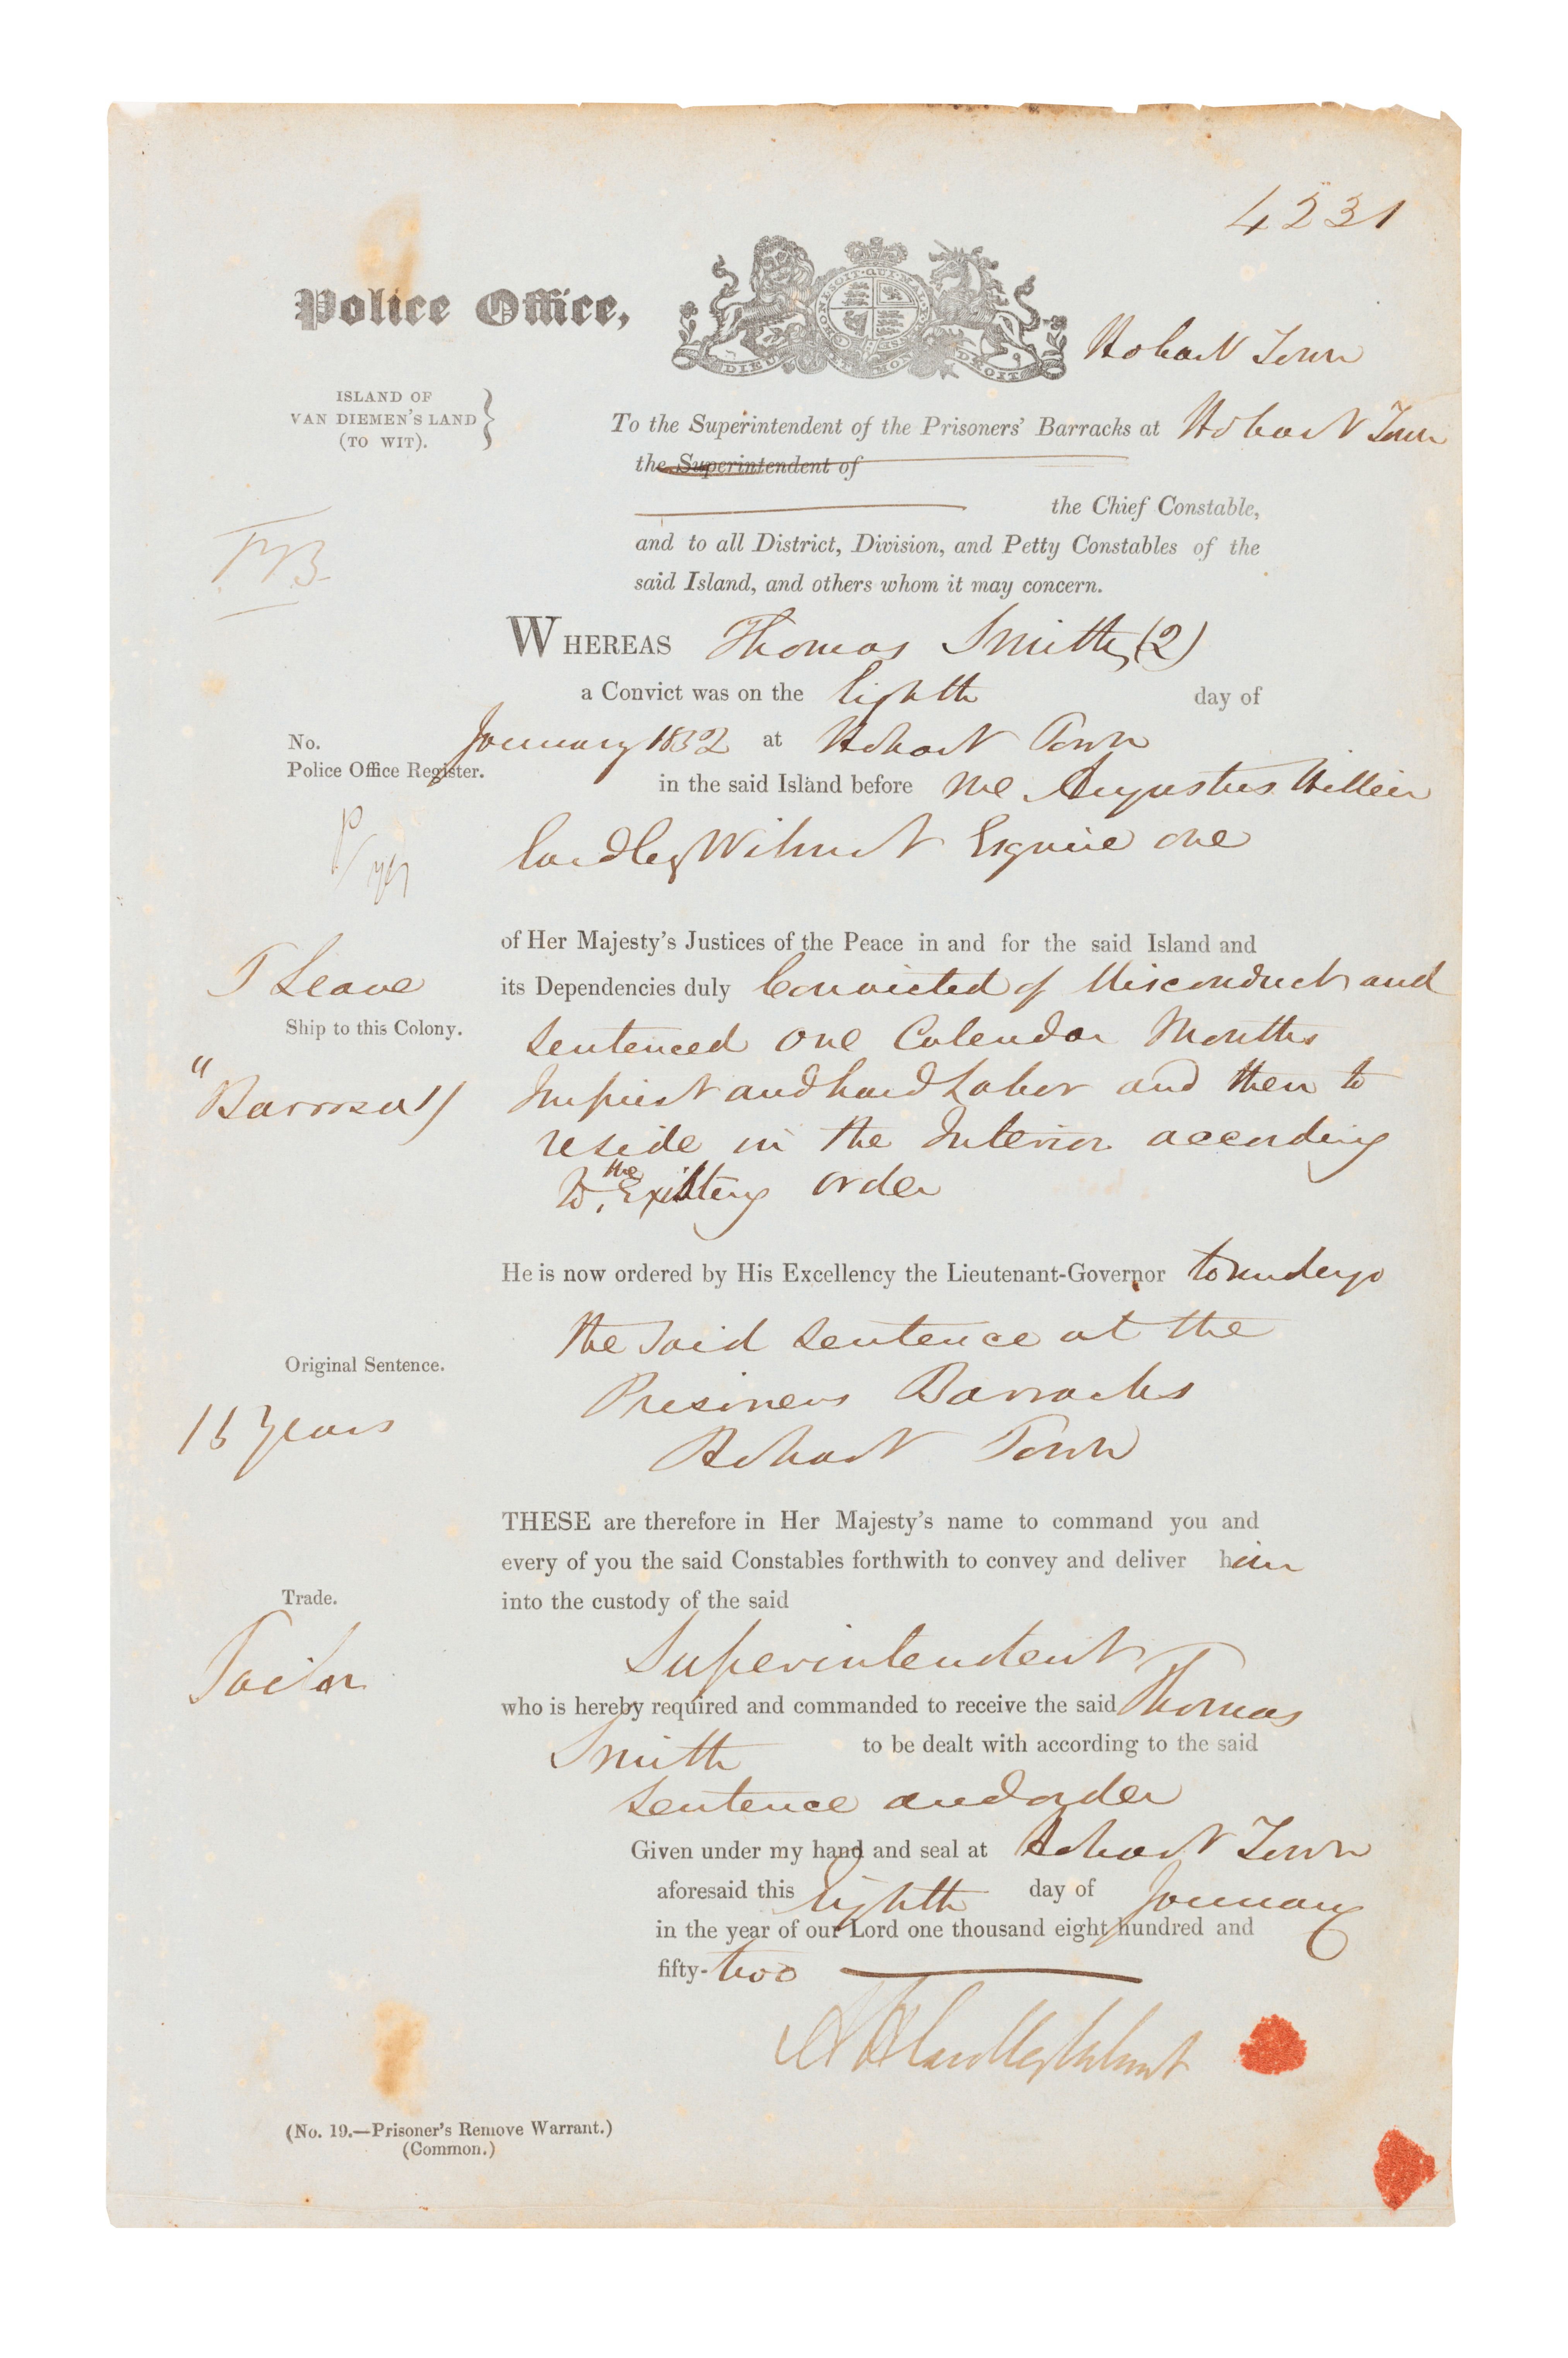 4231
Police Office,
HONI SOIT QUI MAL Y PENSE
DIEU ET MON DROIT
Hobart Town
ISLAND OF
VAN DIEMEN'S LAND
(TO WIT).
To the Superintendent of the Prisoners' Barracks at Hobart Town
the Superintendent of
the Chief Constable,
and to all District, Division, and Petty Constables of the
said Island, and others whom it may concern.
WHEREAS Thomas Smith (2)
a Convict was on the Eighth day of
January 1852 at Hobart Town
No.
Police Office Register.
in the said Island before me Augustus Hillier
Eardley Wilmot Esquire one
of Her Majesty's Justices of the Peace in and for the said Island and
T Leave
its Dependencies duly Convicted of Misconduct and
Ship to this Colony.
Sentenced One Calendar Months
"Barrosa"
Imprist and hard Labor and then to
reside in the Interior according
to the Existing order
He is now ordered by His Excellency the Lieutenant-Governor to undergo
the said Sentence at the
Original Sentence.
Prisoners Barracks
15 Years
Hobart Town
THESE are therefore in Her Majesty's name to command you and
every of you the said Constables forthwith to convey and deliver him
Trade.
into the custody of the said
Tailor
Superintendent
who is hereby required and commanded to receive the said Thomas
Smith to be dealt with according to the said
Sentence and order
Given under my hand and seal at Hobart Town
aforesaid this Eighth day of January
in the year of our Lord one thousand eight hundred and
fifty-two
A H Eardley Wilmot
(No. 19.—Prisoner's Remove Warrant.)
(Common.)